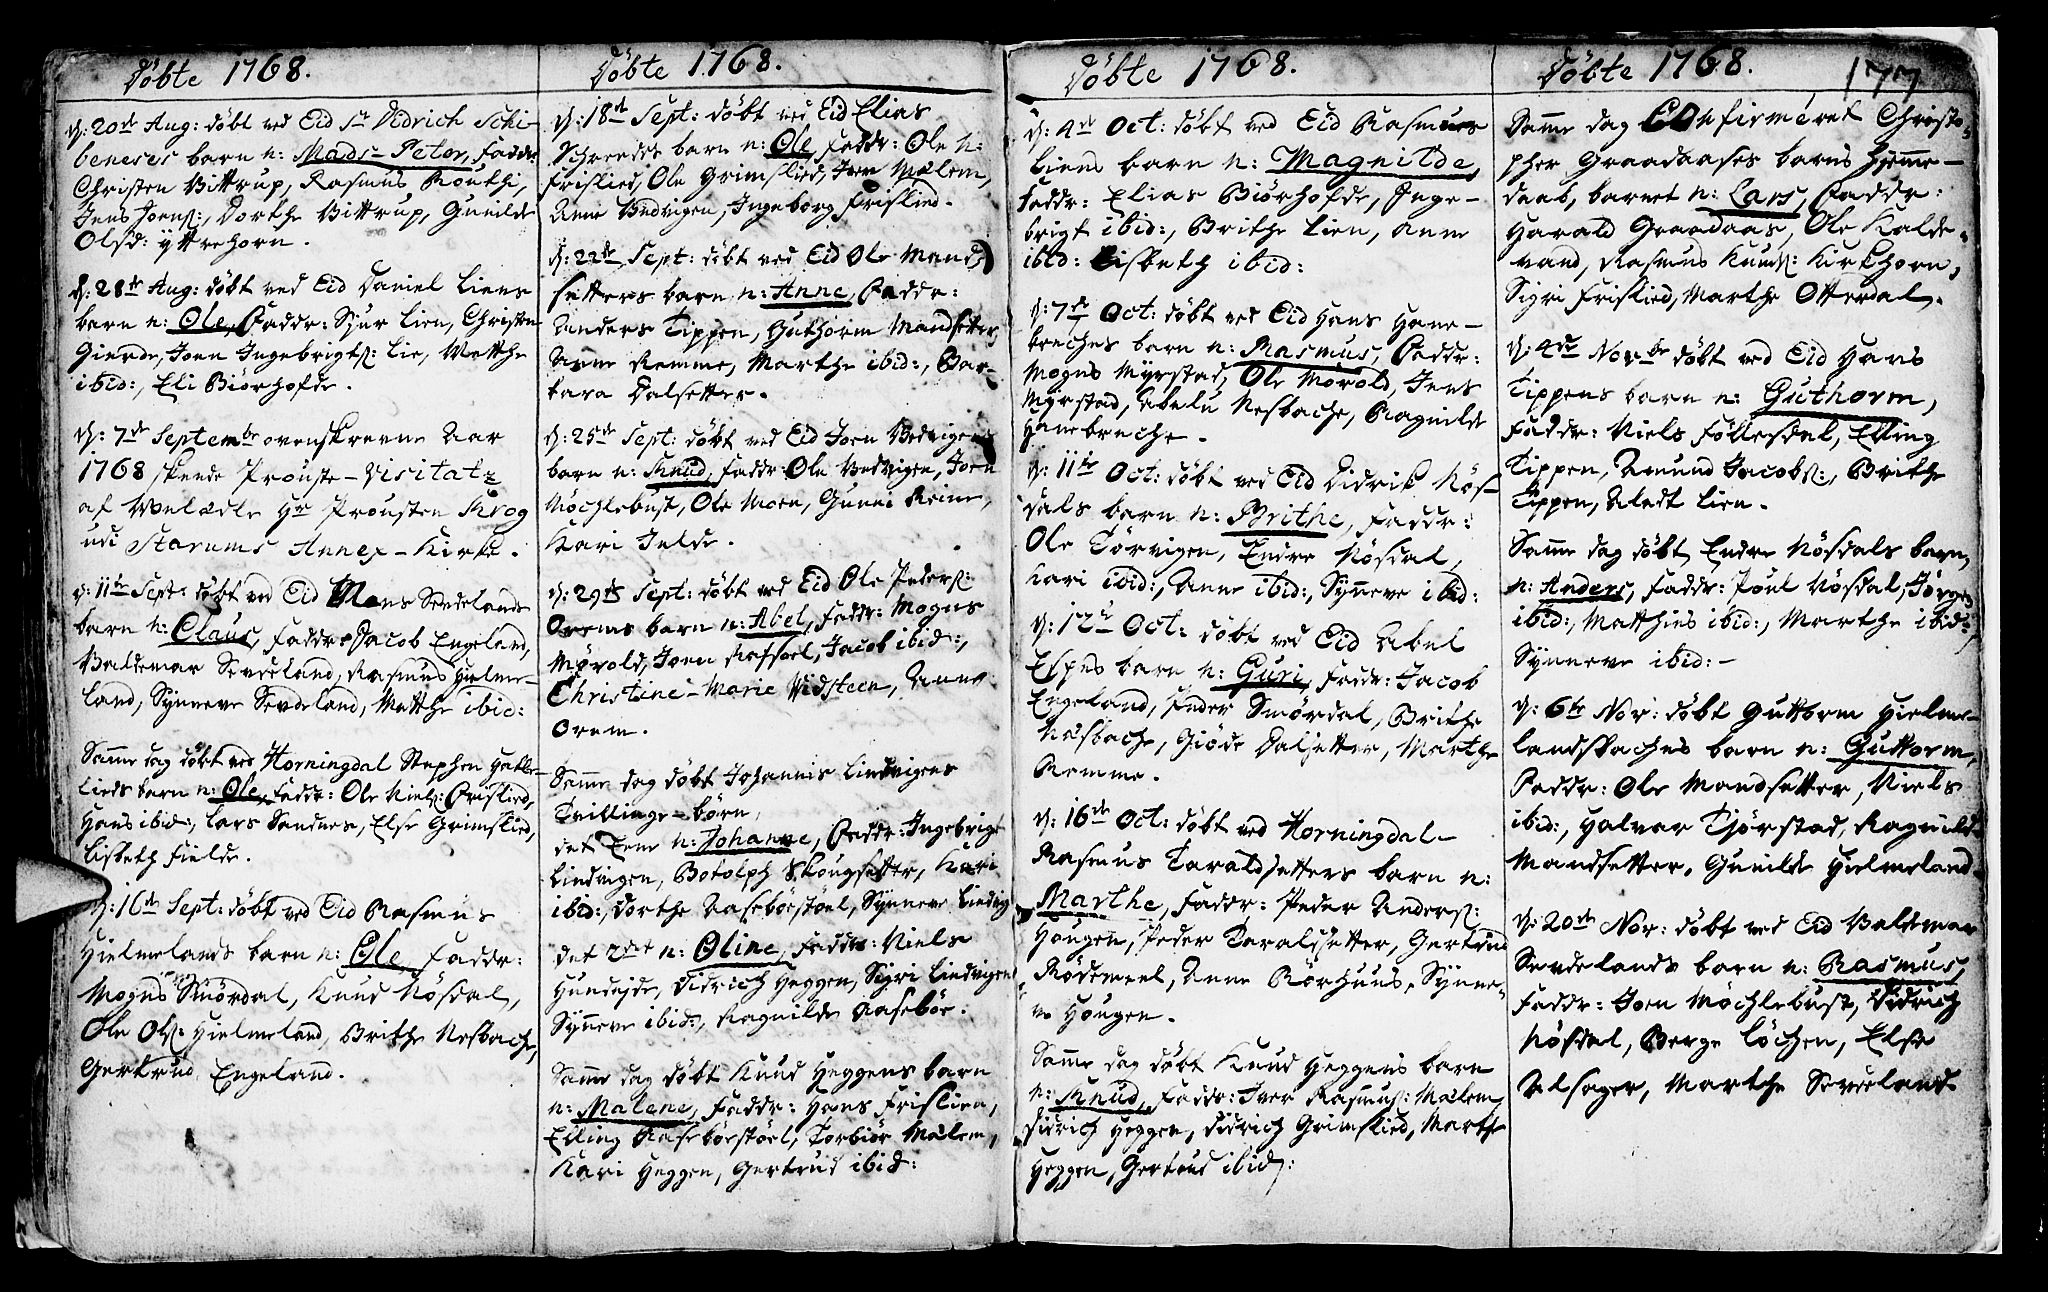 Döbte 1768.
d: 20de Aug: döbt ved Eid Sr Didrich Schi-
beneses barn n: Mads-Peter, Faddr:
Christen Bittrup, Rasmus Routhi,
Jens Joens:, Dorthe Bittrup, Gunilde
Olsd: Yttrehorn.
d: 28de Aug: döbt ved Eid Daniel Liens
barn n: Ole, Faddr: Sjur Lien, Christen
Gierde, Joen Ingebrigts: Lie, Marthe
ibid:, Eli Biörhofde.
d: 7de Septembr ovenskrevne Aar
1768 skeede Prouste-Visitatz
af Velædle Hr Prousten Krog
udi Starums Annex-Kirke.
d: 11te Sept: döbt ved Eid Mons Sevdelands
barn n: Claus, Faddr: Jacob Engeland,
Baldemar Sevdeland, Rasmus Hielme-
land, Synneve Sevdeland, Marthe ibid:
Samme dag döbt ved Horningdal Stephen Hatle-
lieds barn n: Ole, Faddr: Ole Niels: Frislied,
Hans ibid:, Lars Sandnes, Else Grimslied,
Lisbeth Fielde.
d: 16de Sept: döbt ved Eid Rasmus
Hielmelands barn n: Ole, Faddr:
Mogns Smördal, Knud Nösdal,
Ole Ols: Hielmeland, Brithe Nesbache,
Gertrud Engeland.
Döbte 1768.
d: 18de Sept: döbt ved Eid Elias
barn n: Ole, Faddr: Ole N:
Frislied, Ole Grimslied, Iver Mælem,
Anne Bedvigen, Ingeborg Frislied.
d: 22de Sept: döbt ved Eid Ole Mand-
setters barn n: Anne, Faddr:
Anders Tippen, Guthorm Mandsetter,
Arne Remme, Marthe ibid:, Bar-
bara Dalsetter.
d: 25de Sept: döbt ved Eid Joen Bedvigens
barn n: Knud, Faddr: Ole Bedvigen, Joen
Möchlebust, Ole Moen, Gunni Reime,
Kari Indre.
d: 29de Sept: döbt ved Eid Ole Peders:
Orems barn n: Abel, Faddr: Mogns
Mörold, Joen Rafsoel, Jacob ibid:,
Christine-Marie Vidsteen, Anne
Orem.
Samme dag döbt Johannis Lindvigens
Tvillinge-börn,
det Eene n: Johanne, Faddr: Ingebrigt
Lindvigen, Botolph Skougsetter, Kari
ibid:, Dorthe Aaseböestöel, Synneve Lindvig
det 2det n: Oline, Faddr: Niels
Hundeide, Didrich Heggen, Sigri Lindvigen
Synneve ibid:, Ragnilde Raseböe.
Samme dag döbt Knud Heggens barn
n: Malene, Faddr: Hans Frislien,
Elling Raseböestöel, Torbiör Mælem,
Kari Heggen, Gertrud ibid:
Döbte 1768.
d: 4de Oct: döbt ved Eid Rasmus
Liens barn n: Magnilde,
Faddr: Elias Biörhofde, Inge-
brigt ibid:, Brithe Lien, Anne
ibid: Lisbeth ibid:
d: 7de Oct: döbt ved Eid Hans Hane-
breches barn n: Rasmus, Faddr:
Mogns Myrstad, Ole Mörold, Jens
Myrstad, Abelu Nesbache, Ragnilde
Hanebreche.
d: 11te Oct: döbt ved Eid Didrik Nös-
dals barn n: Brithe, Faddr:
Ole Törvigen, Endre Nösdal,
Kari ibid:, Anne ibid:, Synneve ibid:
d: 12te Oct: döbt ved Eid Abel
Espes barn n: Guri, Faddr: Jacob
Engeland, Peder Smördal, Brithe
Nasbache, Giöde Dalsetter, Marthe
Remme.
d: 16de Oct: döbt ved Horningdal
Rasmus Taraldsetters barn n:
Marthe, Faddr: Peder Anders:
Hougen, Peder Taraldsetter, Gertrud
Rödemeel, Anne Rörhuus, Synne-
ve Hougen.
Samme dag döbt Knud Heggens barn
n: Knud, Faddr: Iver Rasmus: Mælem,
Didrich Heggen, Didrich Grimslied, Marthe
Heggen, Gertrud ibid:
Döbte 1768.
177
Samme dag Confirmeret Christo-
pher Graadaases barns Hjemme-
daab, barnet n: Lars, Faddr:
Harald Graadaas, Ole Kalde-
vand, Rasmus Knuds: Kirkhorn,
Sigri Frislied, Marthe Otterdal.
d: 4de Novbr döbt ved Eid Hans
Tippens barn n: Guthorm,
Faddr: Niels Föllesdal, Elling
Tippen, Amund Jacobs:, Brithe
Tippen, Aledt Lien.
Samme dag döbt Endre Nösdals barn,
n: Anders, Faddr: Poul Nösdal, Jörgen
ibid:, Matthies ibid:, Marthe ibid:
Synneve ibid:-
d: 6te Nov: döbt Guttorm Hielme-
landsbaches barn n: Guttorm,
Faddr: Ole Mandsetter, Niels
ibid:, Halvar Tjörstad, Ragnild
Mandsetter, Gunilde Hielmeland
d: 20de Nov: döbt ved Eid Baldemar
Sevdelands barn n: Rasmus,
Faddr: Joen Möchlebust, Didrich
Nösdal, Berge Löchen, Else
Alsager, Marthe Sevdeland